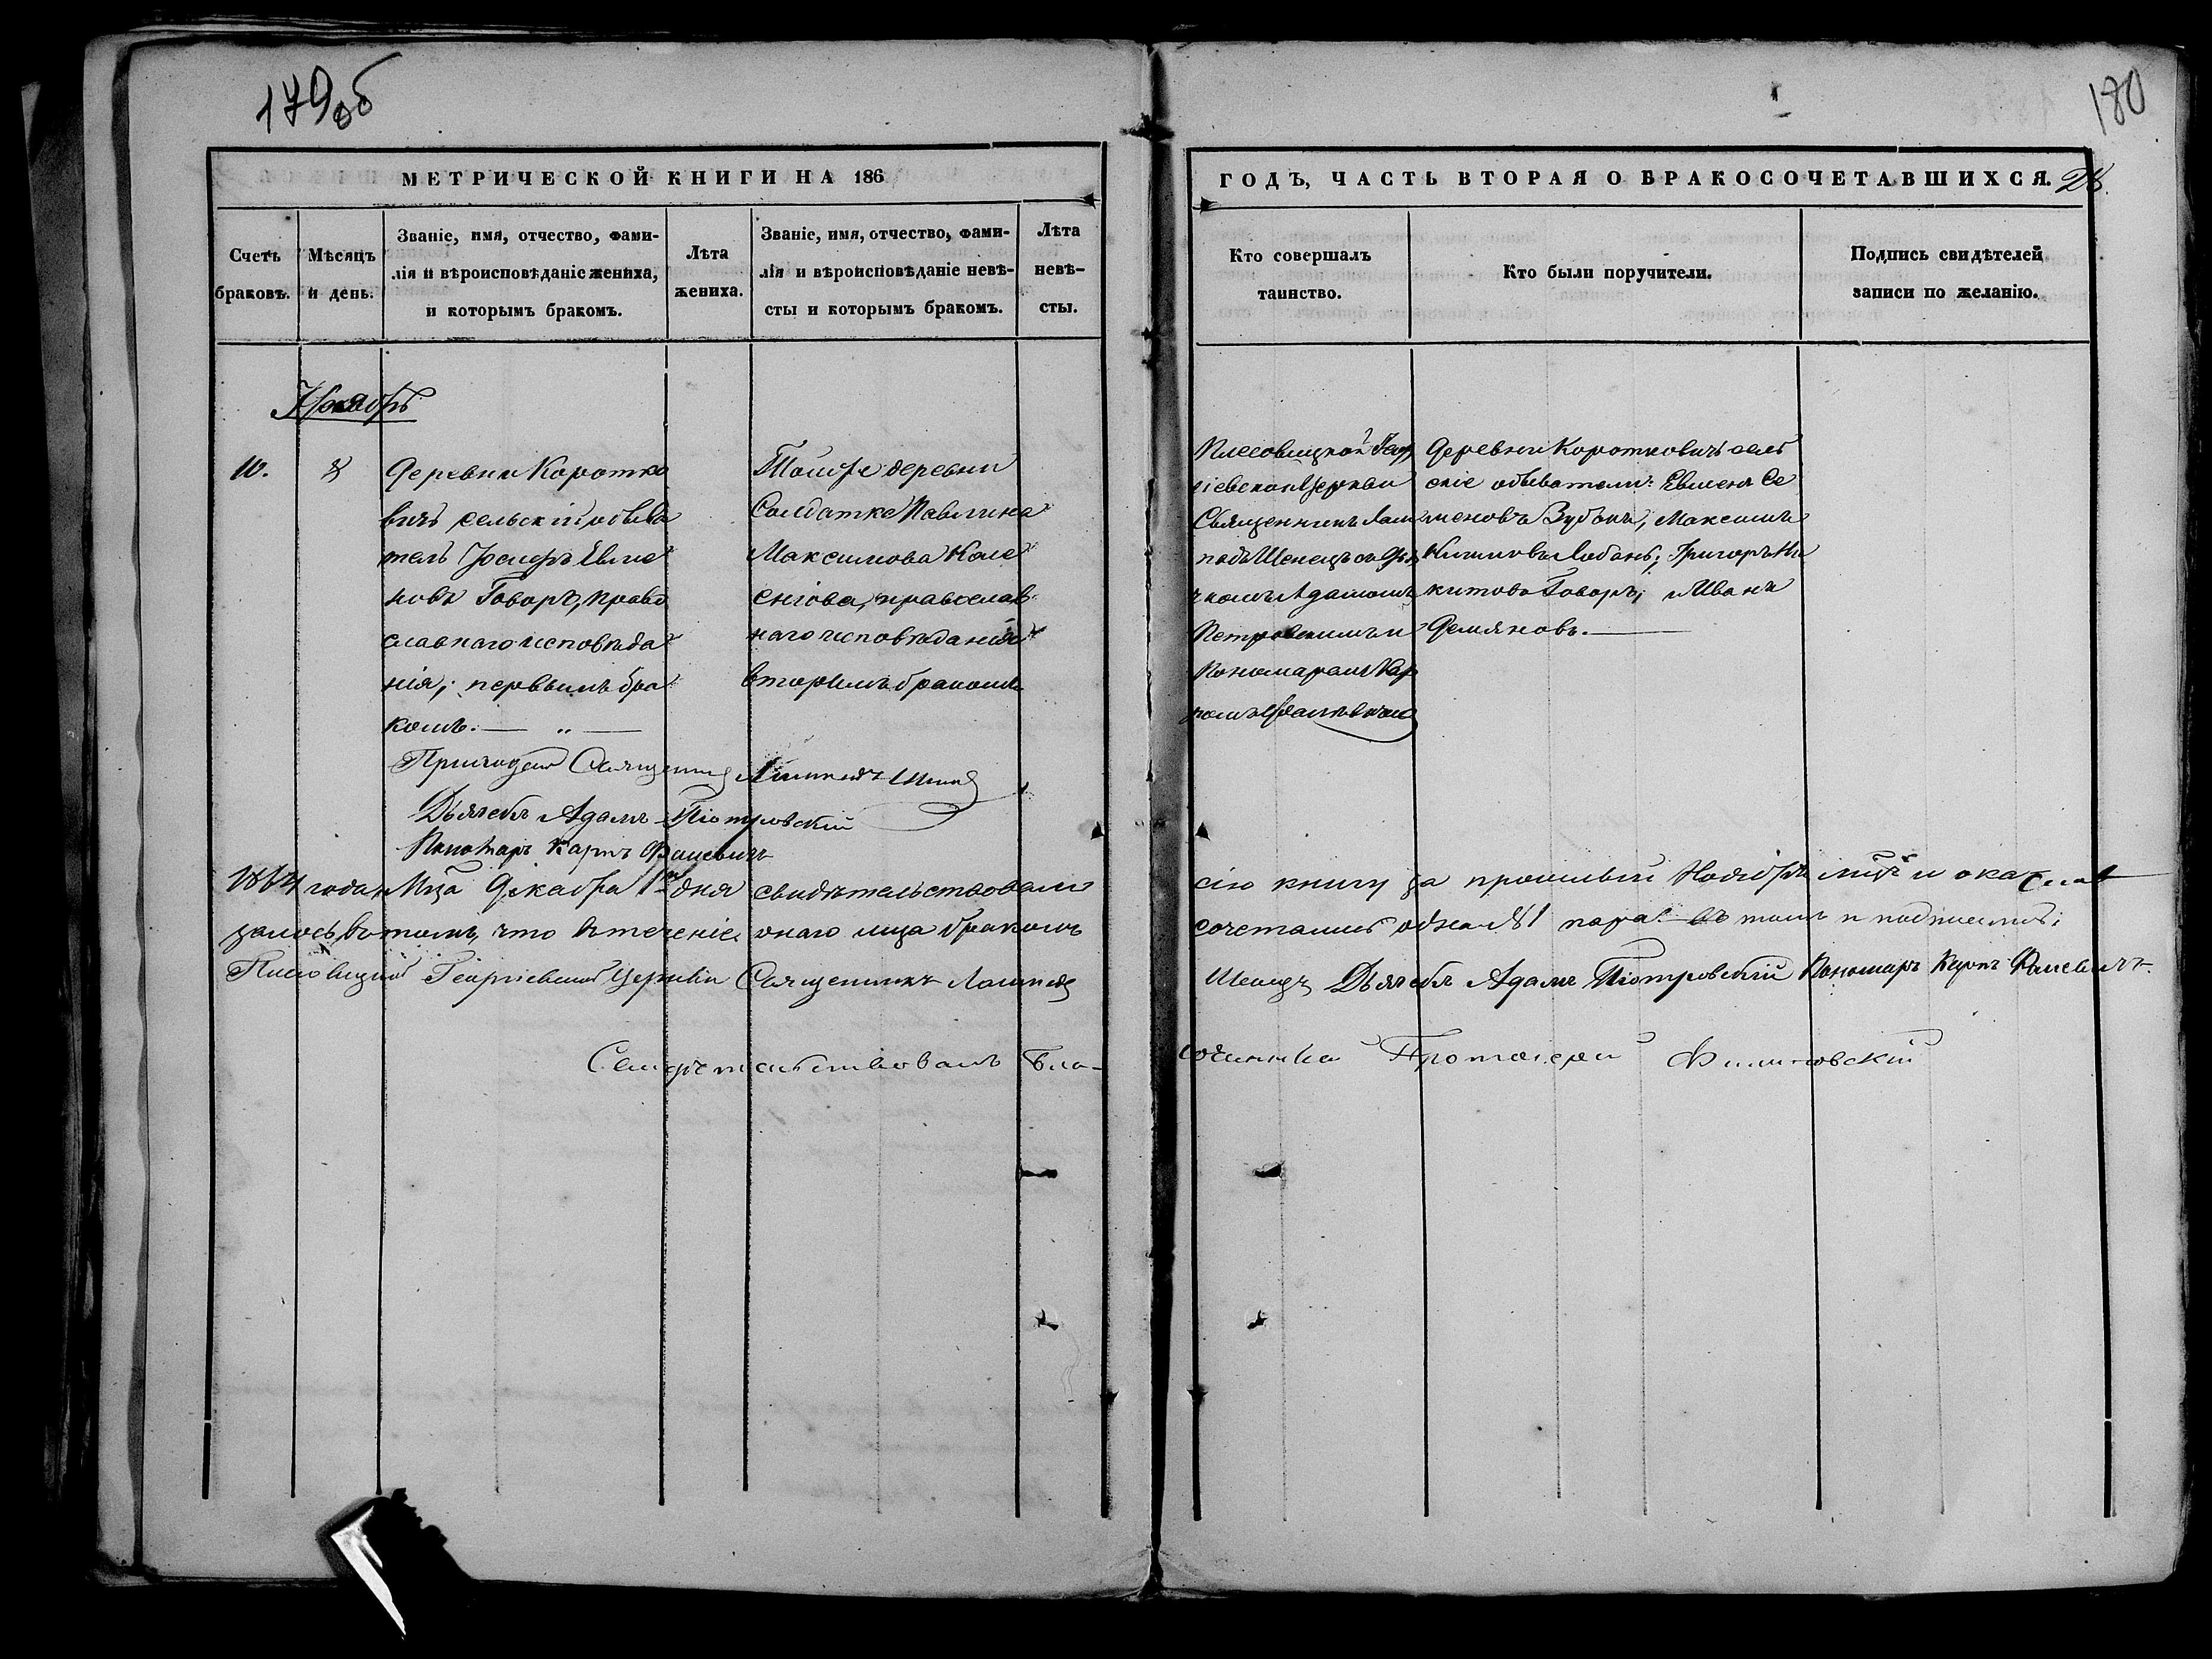 179 об
180
МЕТРИЧЕСКОЙ КНИГИ НА 186
Счетъ
браковъ.
Мѣсяцъ
и день.
Званіе, имя, отчество, фами-
лія и вѣроисповѣданіе жениха,
и которымъ бракомъ.
Лѣта
жениха.
Званіе, имя, отчество, фами-
лія и вѣроисповѣданіе невѣ-
сты и которымъ бракомъ.
Лѣта
невѣ-
сты.
Ноябрь
10.
8
Деревни Коротко
вичъ сельскій обыва
тель Іосифъ Евме
новъ Говоръ, право
славнаго исповѣда
нія; первымъ бра
комъ. — „ —
Тойже деревни
Солдатка Павлина
Максимова
православ
наго исповѣданія
вторымъ бракомъ
Приходскій Священникъ
Дьячекъ Адамъ Піотровскій
Пономарь Карпъ
1864 года, Мца Декабря 1 дня свидѣтельствовали
залось, въ томъ, что въ теченіе онаго мца бракомъ
Георгіевской Церкви Священникъ
Свидѣтельствовалъ Бла-
ГОДЪ, ЧАСТЬ ВТОРАЯ О БРАКОСОЧЕТАВШИХСЯ. 28.
Кто совершалъ
таинство.
Кто были поручители.
Подпись свидѣтелей
записи по желанію.
гіевской Церкви
Священникъ
съ Дья
чкомъ Адамомъ
Петровскимъ и
Пономаремъ Кар
помъ
Деревни Коротковичъ сель
скіе обыватели: Евмена Се
меновъ Зубокъ, Максимъ
Лобанъ; Григоръ Ни
китовъ Говоръ; Иванъ
Демяновъ. —
сію книгу за прошлый Ноябрь мцъ и ока
сочетались одна № 1 пара. въ томъ и подписались:
Дьячекъ Адамъ Піотровскій Пономарь Карпъ
гочинный Протоіерей